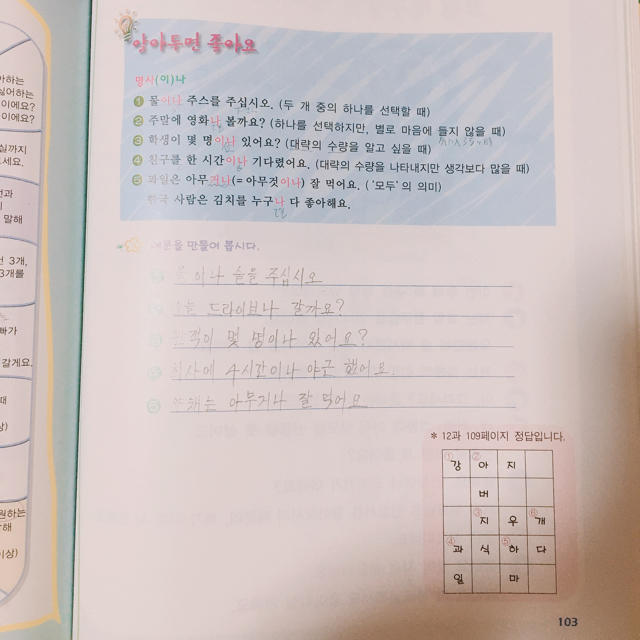 알아두면 좋아요
명사(이)나
❶ 물이나 주스를 주십시오. (두 개 중의 하나를 선택할 때)
❷ 주말에 영화나 볼까요? (하나를 선택하지만, 별로 마음에 들지 않을 때)
❸ 학생이 몇 명이나 있어요? (대략의 수량을 알고 싶을 때)
❹ 친구를 한 시간이나 기다렸어요. (대략의 수량을 나타내지만 생각보다 많을 때)
❺ 과일은 아무거나(= 아무것이나) 잘 먹어요. ('모두'의 의미)
한국 사람은 김치를 누구나 다 좋아해요.
예문을 만들어 봅시다.
물이나 술을 주십시오
드라이브나 갈까요?
몇 명이나 왔어요?
회사에 4시간이나 야근 했어요
야채는 아무거나 잘 먹어요
* 12과 109페이지 정답입니다.
① 강 ② 아 지
버
③ 지 우 ⑥ 개
④ 과 식 ⑤ 하 다
일 마
103
아하는
싫어하는
이에요?
이에요?
실까지
세요.
선과
말해
선 3개,
3개를
빠가
갈게요.
때
상)
원하는
말해
이상)